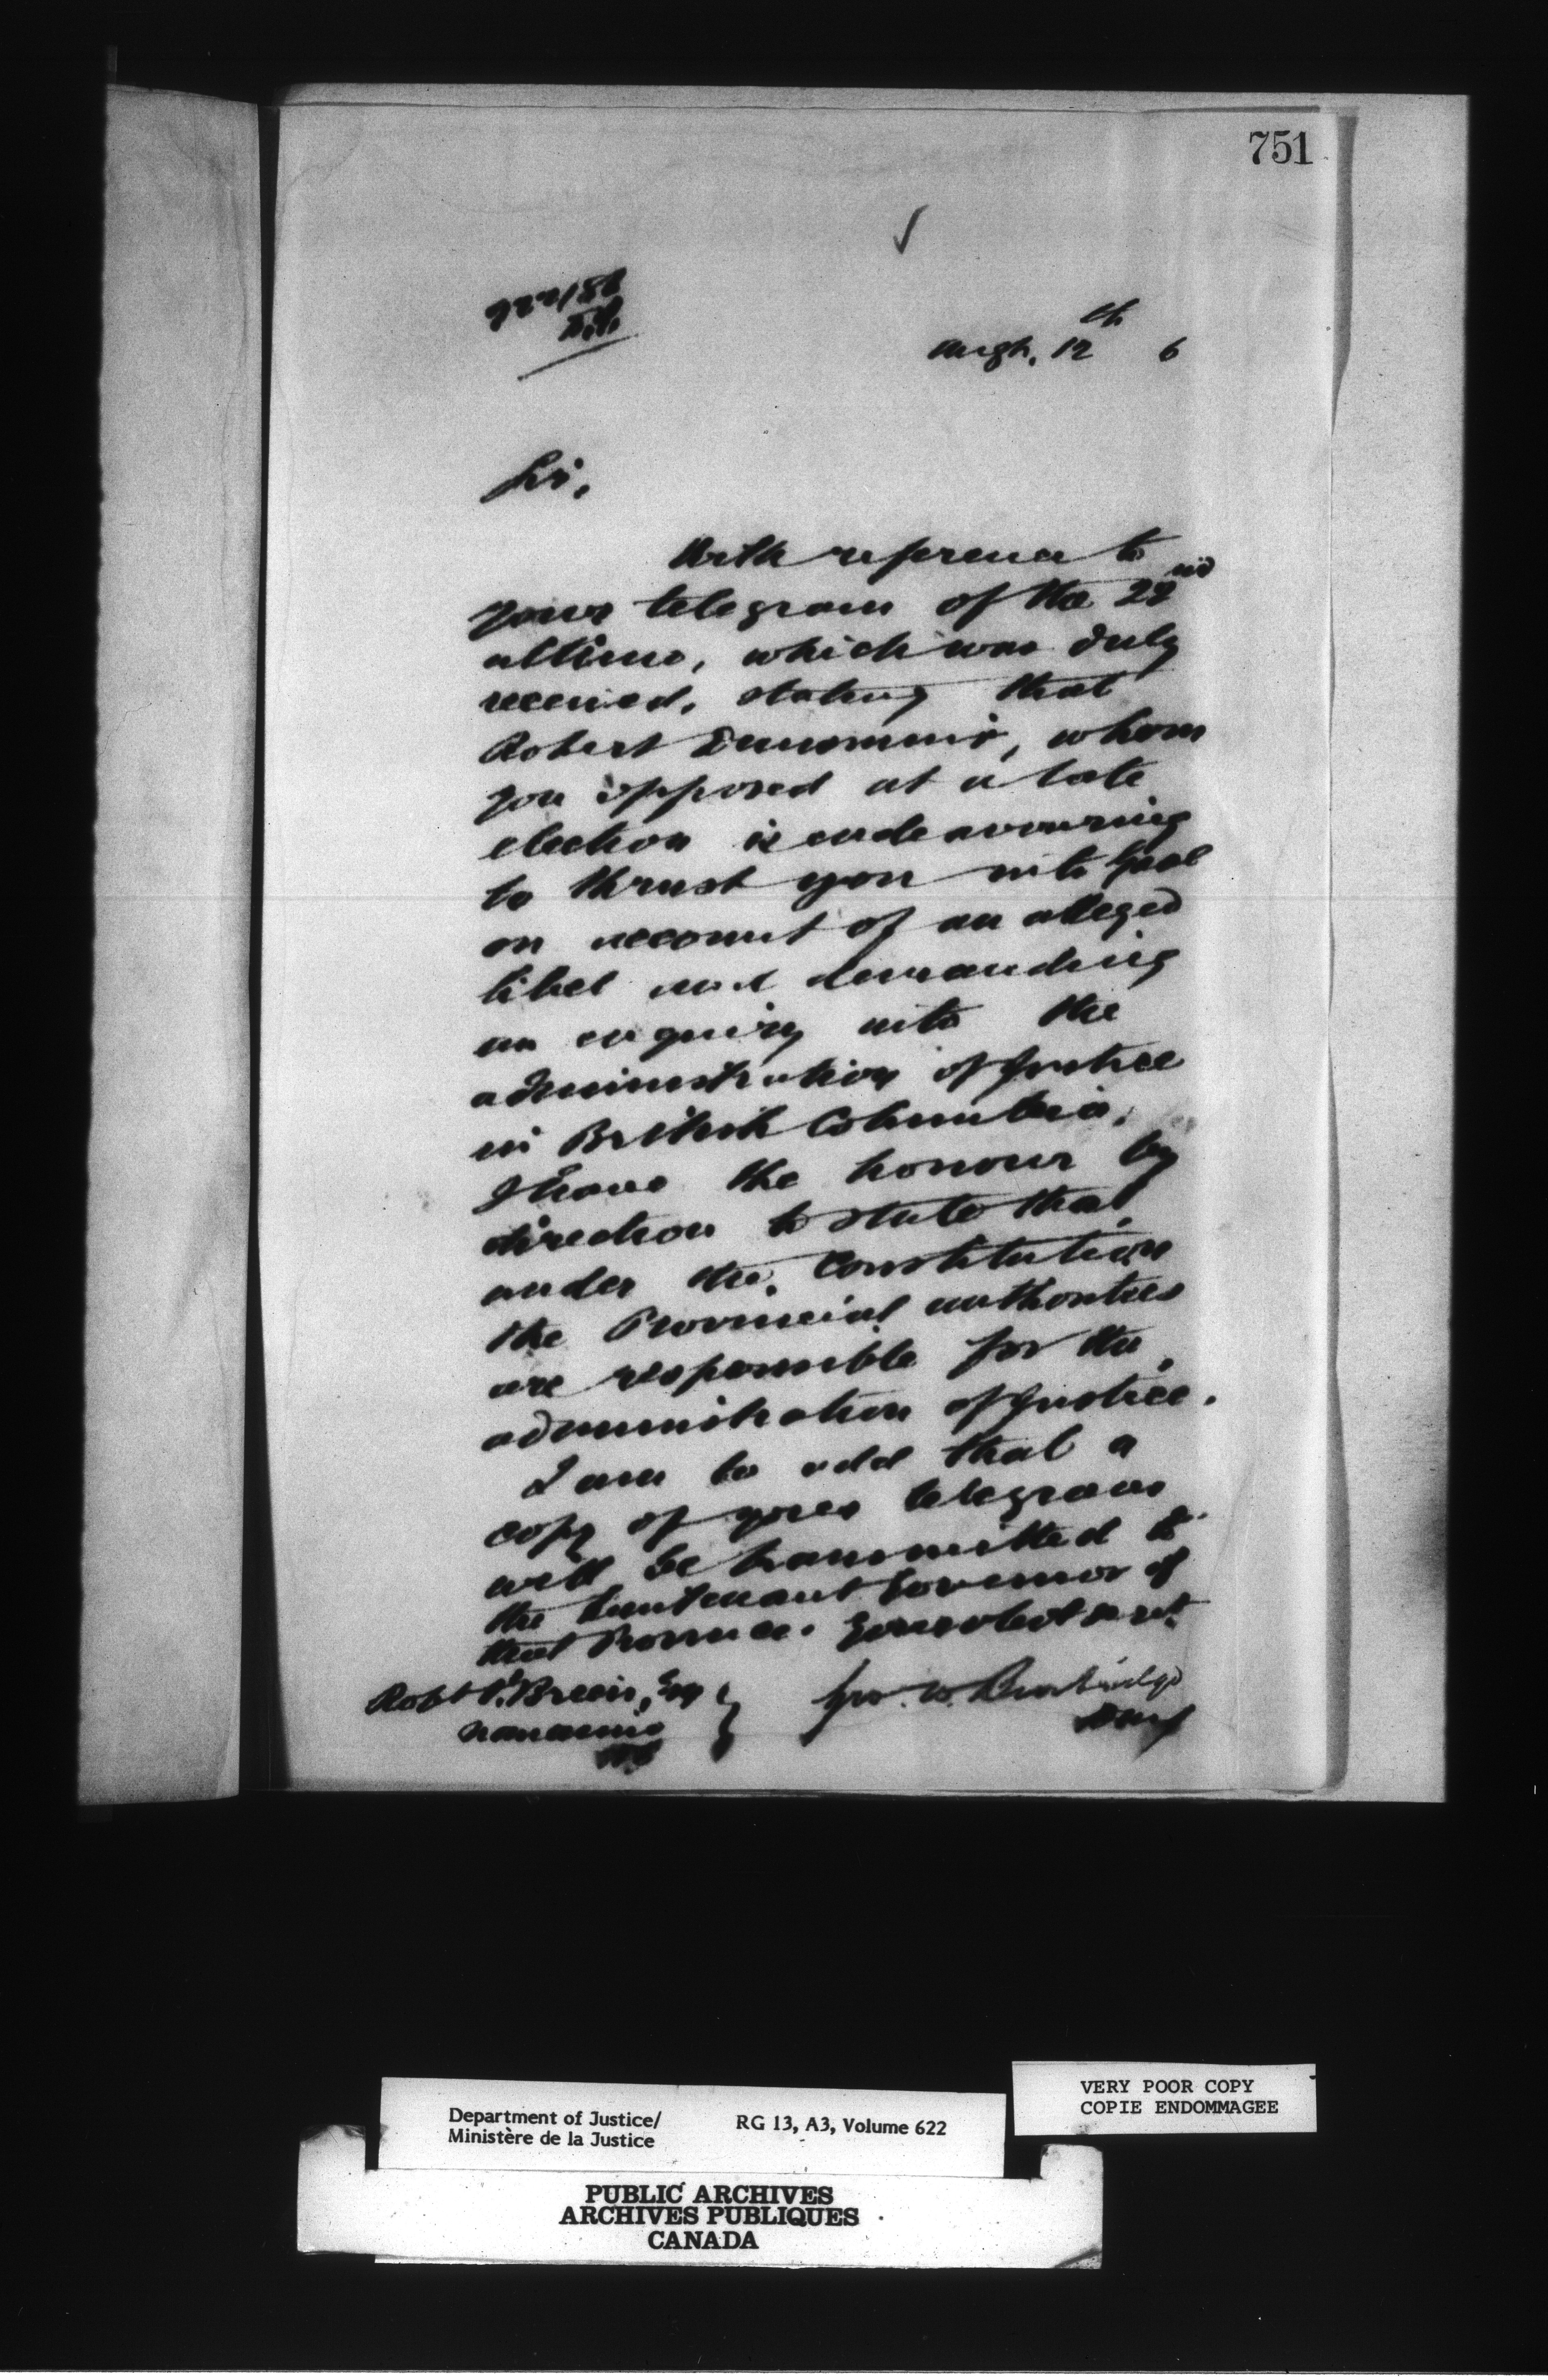 751
922/86
Augt. 12th 6
Sir,
With reference to
your telegram of the 22nd
ultimo, which was duly
received, stating that
Robert Dunsmuir, whom
you opposed at a late
election is endeavouring
to thrust you into Gaol
on account of an alleged
libel and demanding
an enquiry into the
administration of Justice
in British Columbia,
I have the honour by
direction to state that
under the Constitution
the Provincial authorities
are responsible for the
administration of Justice.
I am to add that a
copy of your telegram
will be transmitted to
the Lieutenant Governor of
that Province. Your obedt servt
Robt O'Brein, Esq Geo. W. Burbidge
Nanaimo
BC
VERY POOR COPY
COPIE ENDOMMAGEE
Department of Justice/ RG 13, A3, Volume 622
Ministère de la Justice
PUBLIC ARCHIVES
ARCHIVES PUBLIQUES
CANADA